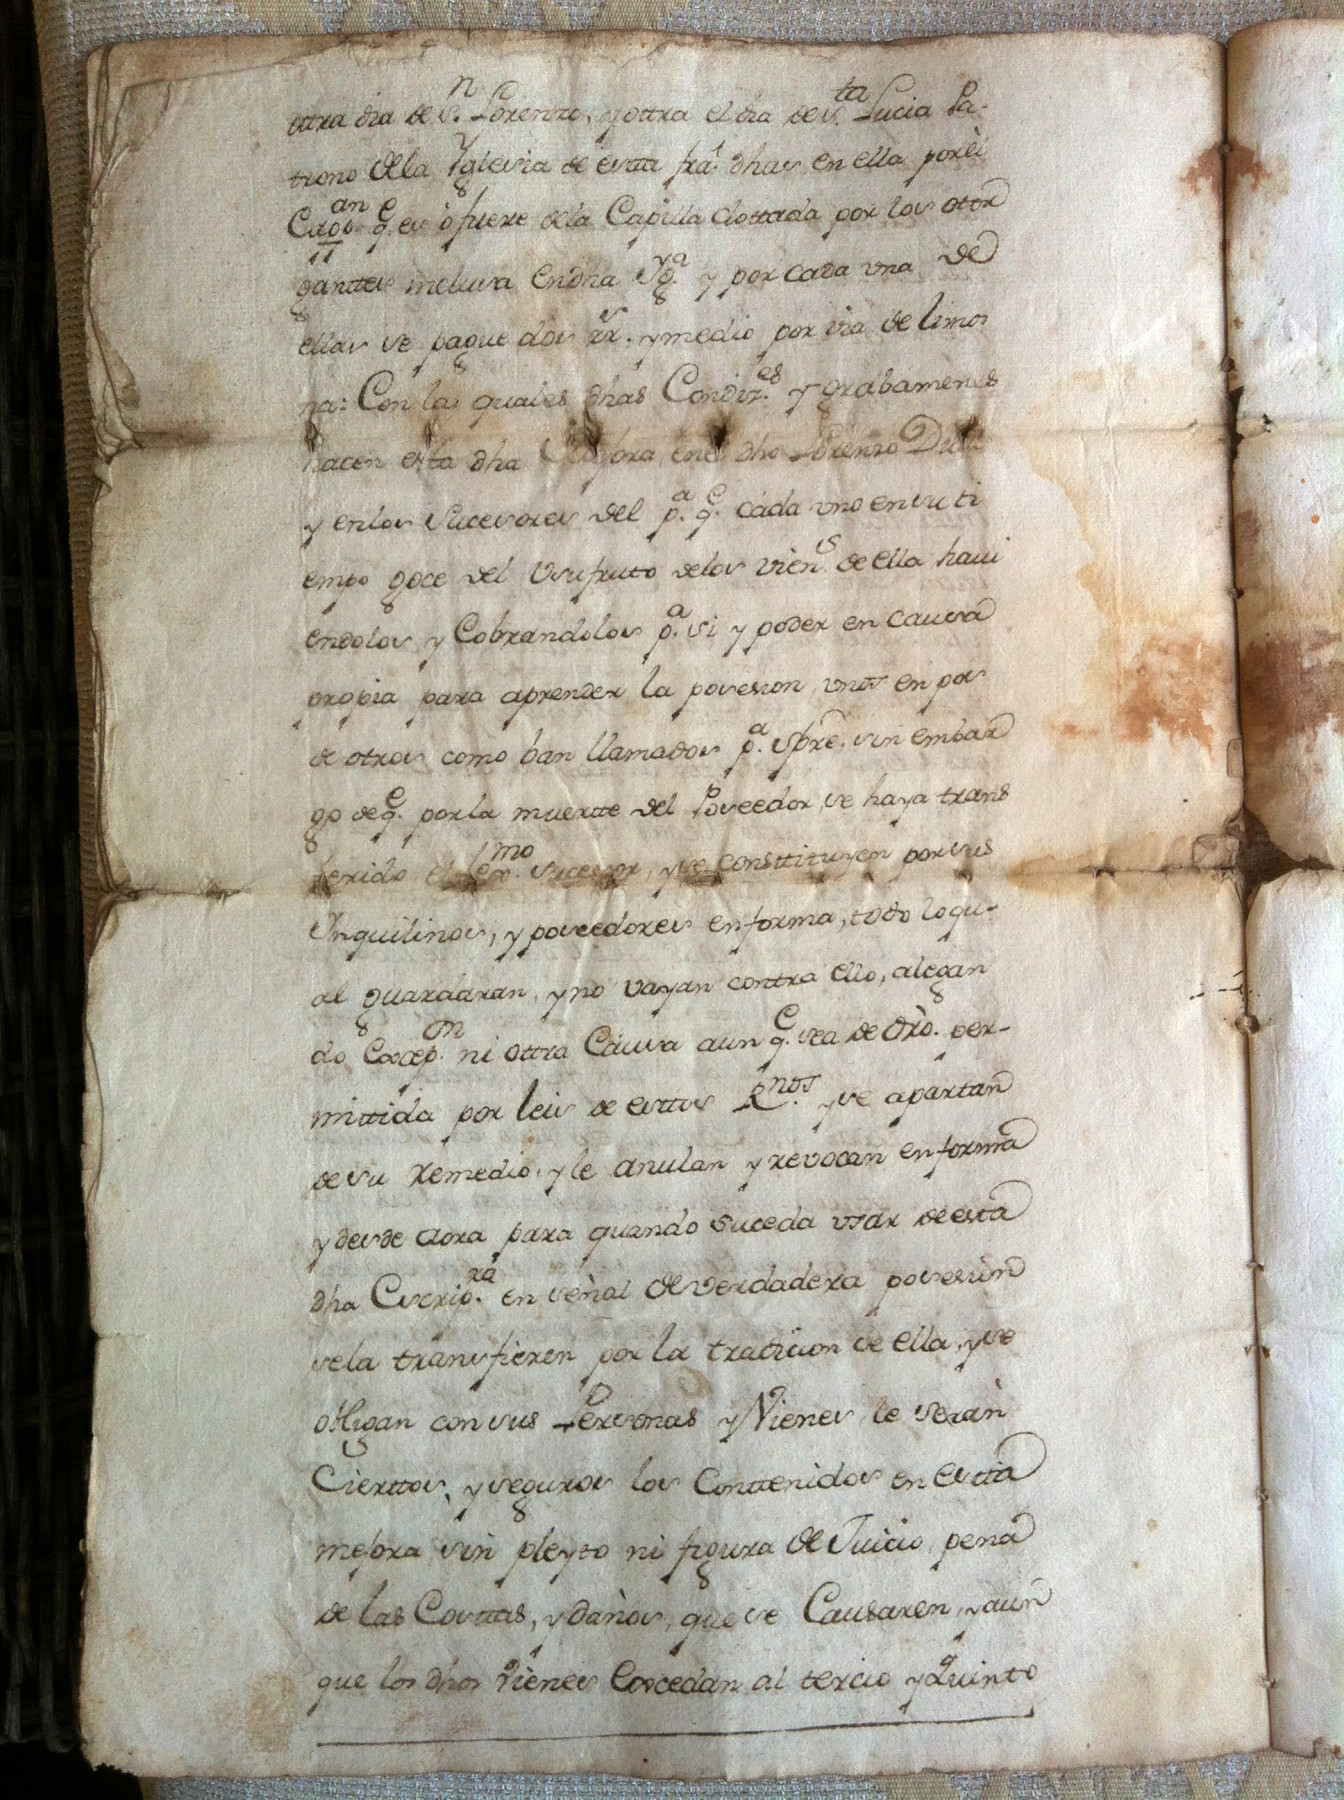 ottra dia de S.n Lorenzo, y ottra el dia de S.ta Lucia Pa-
trono de la Yglesia de estta fra. dhas en ella por èl
q.e es ò fuere de la Capilla dottada por los ottor
ganttes inclusa en dha Yg.a y por cada una de
ellas se pague dos rr.s y medio por via de limos
na: Con las quales dhas Condiz.es y grabamenes
hacen esta dha Mejora, en el dho Lorenzo
y en los Sucesores del p.a q.e cáda uno en su ti
empo goce del Vsufruto de los vien.s de ella haui
endolos y Cobrandolos p.a si y poder en causa
propia para aprender la posesion vnos en pos
de otros como ban llamados p.a spre. sin embar
go de q.e por la muertte del Poseedor se haya trans
ferido el lexmo. sucesor, y se consttituyen por sus
Ynquilinos, y poseedores en forma, todo lo qu-
al guardaran, y no vayan contra ello, alegan
do Excep.on ni ottra Cáusa aun q.e sea de dro. per-
mittida por leis de esttos R.nos y se apartan
de su remedio, y le anulan y revocan en forma
y desde aora para quando suceda usar de esta
dha Escrip.ra en señal de verdadera posesion
se la transfieren por la tradicion de ella, y se
obligan con sus Personas y Vienes le seràn
Cierttos, y seguros los Conttenidos en estta
mejora sin pleyto ni figura de Juicio, pena
de las Costtas, y daños, que se Causaren, y aun
que los dhos vienes Excedan al tercio y Quinto